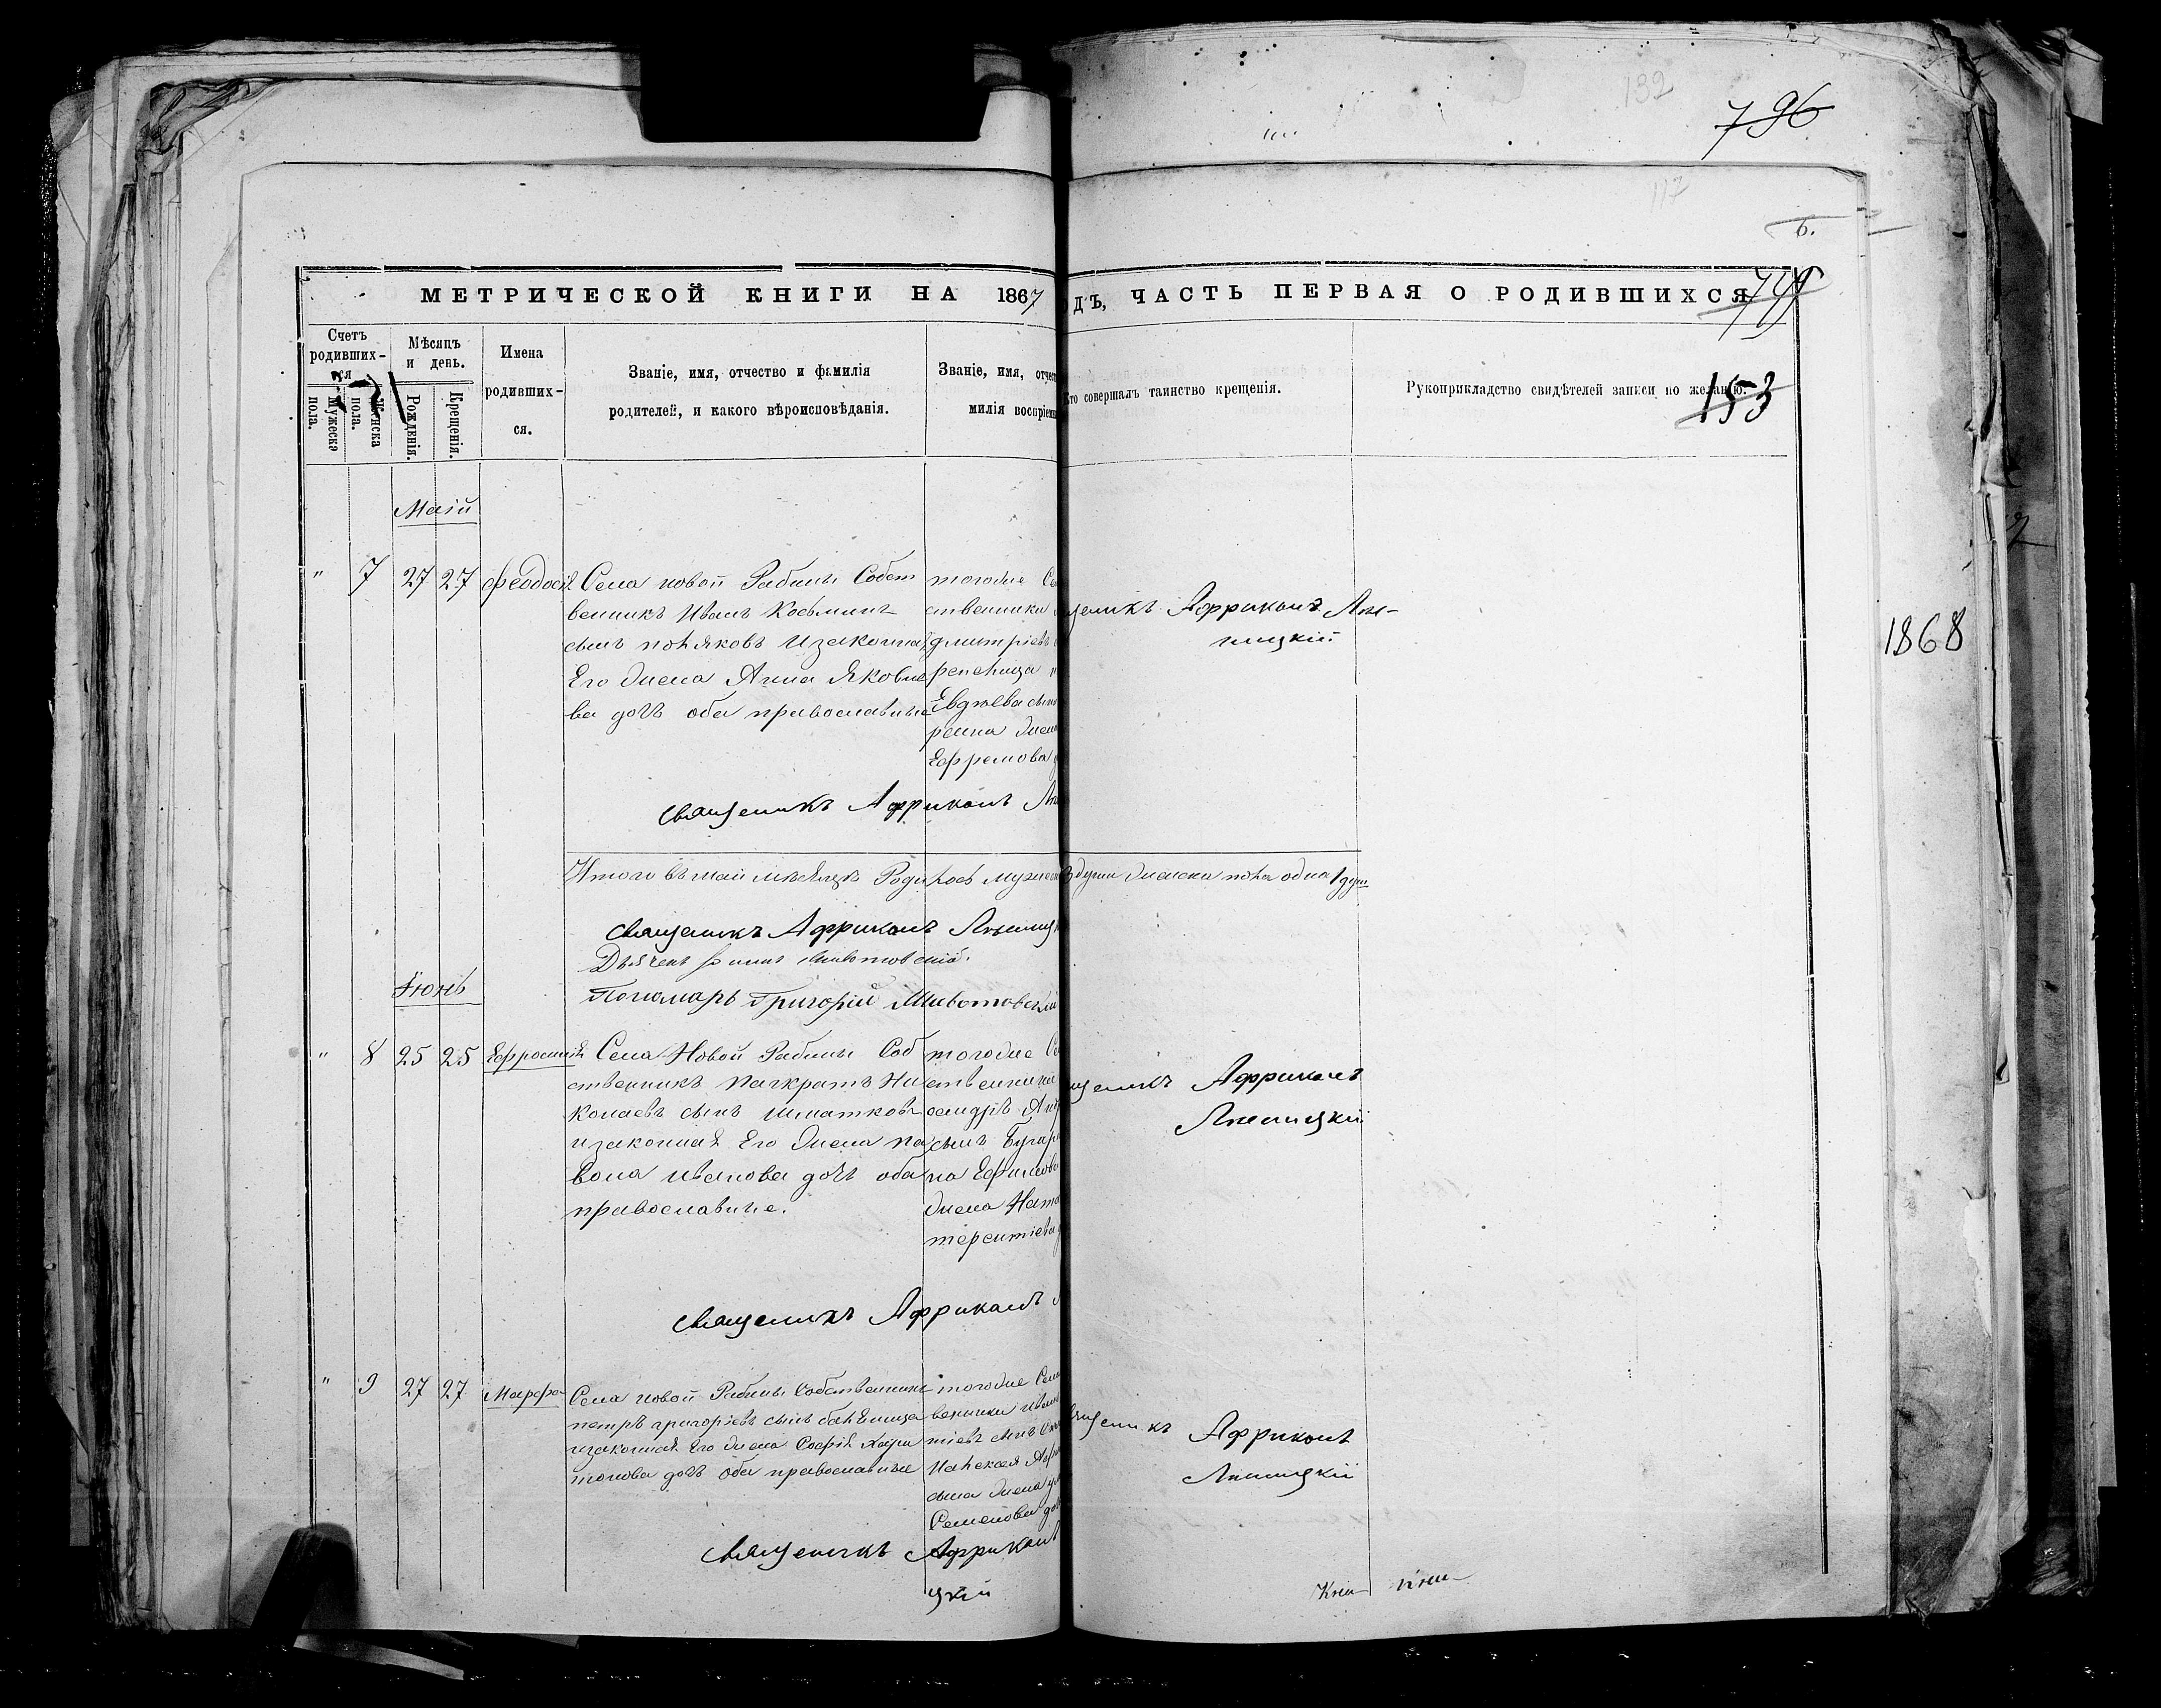 132
796
117
6.
МЕТРИЧЕСКОЙ КНИГИ НА 1867
ДЪ, ЧАСТЬ ПЕРВАЯ О РОДИВШИХСЯ
153
Счетъ родивших-ся
Мужеска пола.
Женска пола.
Мѣсяцъ и день.
Рожденія.
Крещенія.
Имена родивших-ся.
Званіе, имя, отчество и фамилія
родителей, и какого вѣроисповѣданія.
Званіе, имя, отчес
милія воспріемн
Кто совершалъ таинство крещенія.
Рукоприкладство свидѣтелей записи по желанію.
Маій
" 7 27 27 Феодосія
Села новой Рабыни Собст
венникъ Иванъ Косьминъ
сынъ Поляковъ и законная
Его жена Анна Яковле
ва дочь оба православные
тогоже Се
ственники
Дмитріевъ
Евдоева сын
жена
Ефремова
щеникъ Аффриканъ Ли-
ницкій
Священикъ Аффриканъ
1868
Итого въ маи мѣсяцѣ Родилось мужеск 3 души женска пола одна 1 душ
Священикъ Аффриканъ
Дьячекъ
Пономарь Григорій Животовскій
Іюнь
" 8 25 25 Ефросинія
Села Новой Рабыни Соб
ственникъ Панкратъ Ни
колаевъ сынъ Шматковъ
и законная Его жена Па
вола Иванова дочь оба
православные.
тогоже Се
ственники
сынъ
на Ефимова
жена Ната
терентіева
щеникъ Аффриканъ
Линицкій
Священикъ Аффриканъ
" 9 27 27 Марфа
Села новой Рабыни Собственникъ
петръ григоріевъ сынъ
и законная Его жена Софія Хари
тонова дочь оба православные
тогоже Села
венники Иван
тіевъ сынъ
сына жена
Семенова до
щеникъ Аффриканъ
Линицкій
Священикъ Аффриканъ
цкій